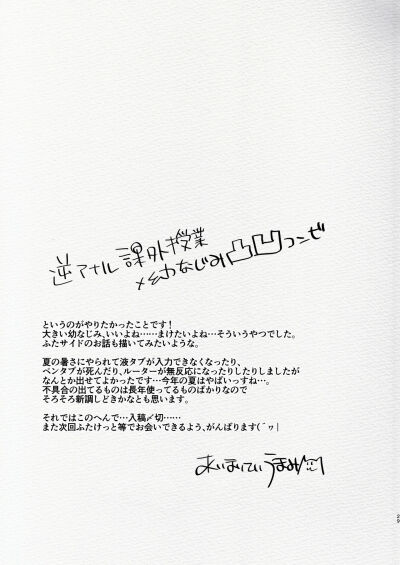 逆アナル 課外授業
×幼なじみ凸凹コンビ
というのがやりたかったことです！
大きい幼なじみ、いいよね……まけたいよね…そういうやつでした。
ふたサイドのお話も描いてみたいような。
夏の暑さにやられて液タブが入力できなくなったり、
ペンタブが死んだり、ルーターが無反応になったりしたりしましたが
なんとか出せてよかったです…今年の夏はやばいっすね…。
不具合の出てるものは長年使ってるものばかりなので
そろそろ新調しどきかなとも思います。
それではこのへんで…入稿〆切……
また次回ふたけっと等でお会いできるよう、がんばります(´ヮ|
29